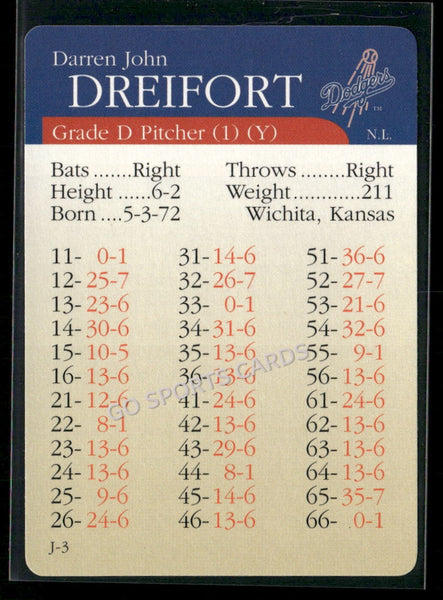 Darren John
DREIFORT
Dodgers
TM
Grade D Pitcher (1) (Y)
N.L.
Bats .......Right Throws ........Right
Height ......6-2 Weight............211
Born ....5-3-72 Wichita, Kansas
11- 0-1 31-14-6 51-36-6
12-25-7 32-26-7 52-27-7
13-23-6 33- 0-1 53-21-6
14-30-6 34-31-6 54-32-6
15-10-5 35-13-6 55- 9-1
16-13-6 36-13-6 56-13-6
21-12-6 41-24-6 61-24-6
22- 8-1 42-13-6 62-13-6
23-13-6 43-29-6 63-13-6
24-13-6 44- 8-1 64-13-6
25- 9-6 45-14-6 65-35-7
26-24-6 46-13-6 66- 0-1
GO SPORTS CARDS
J-3